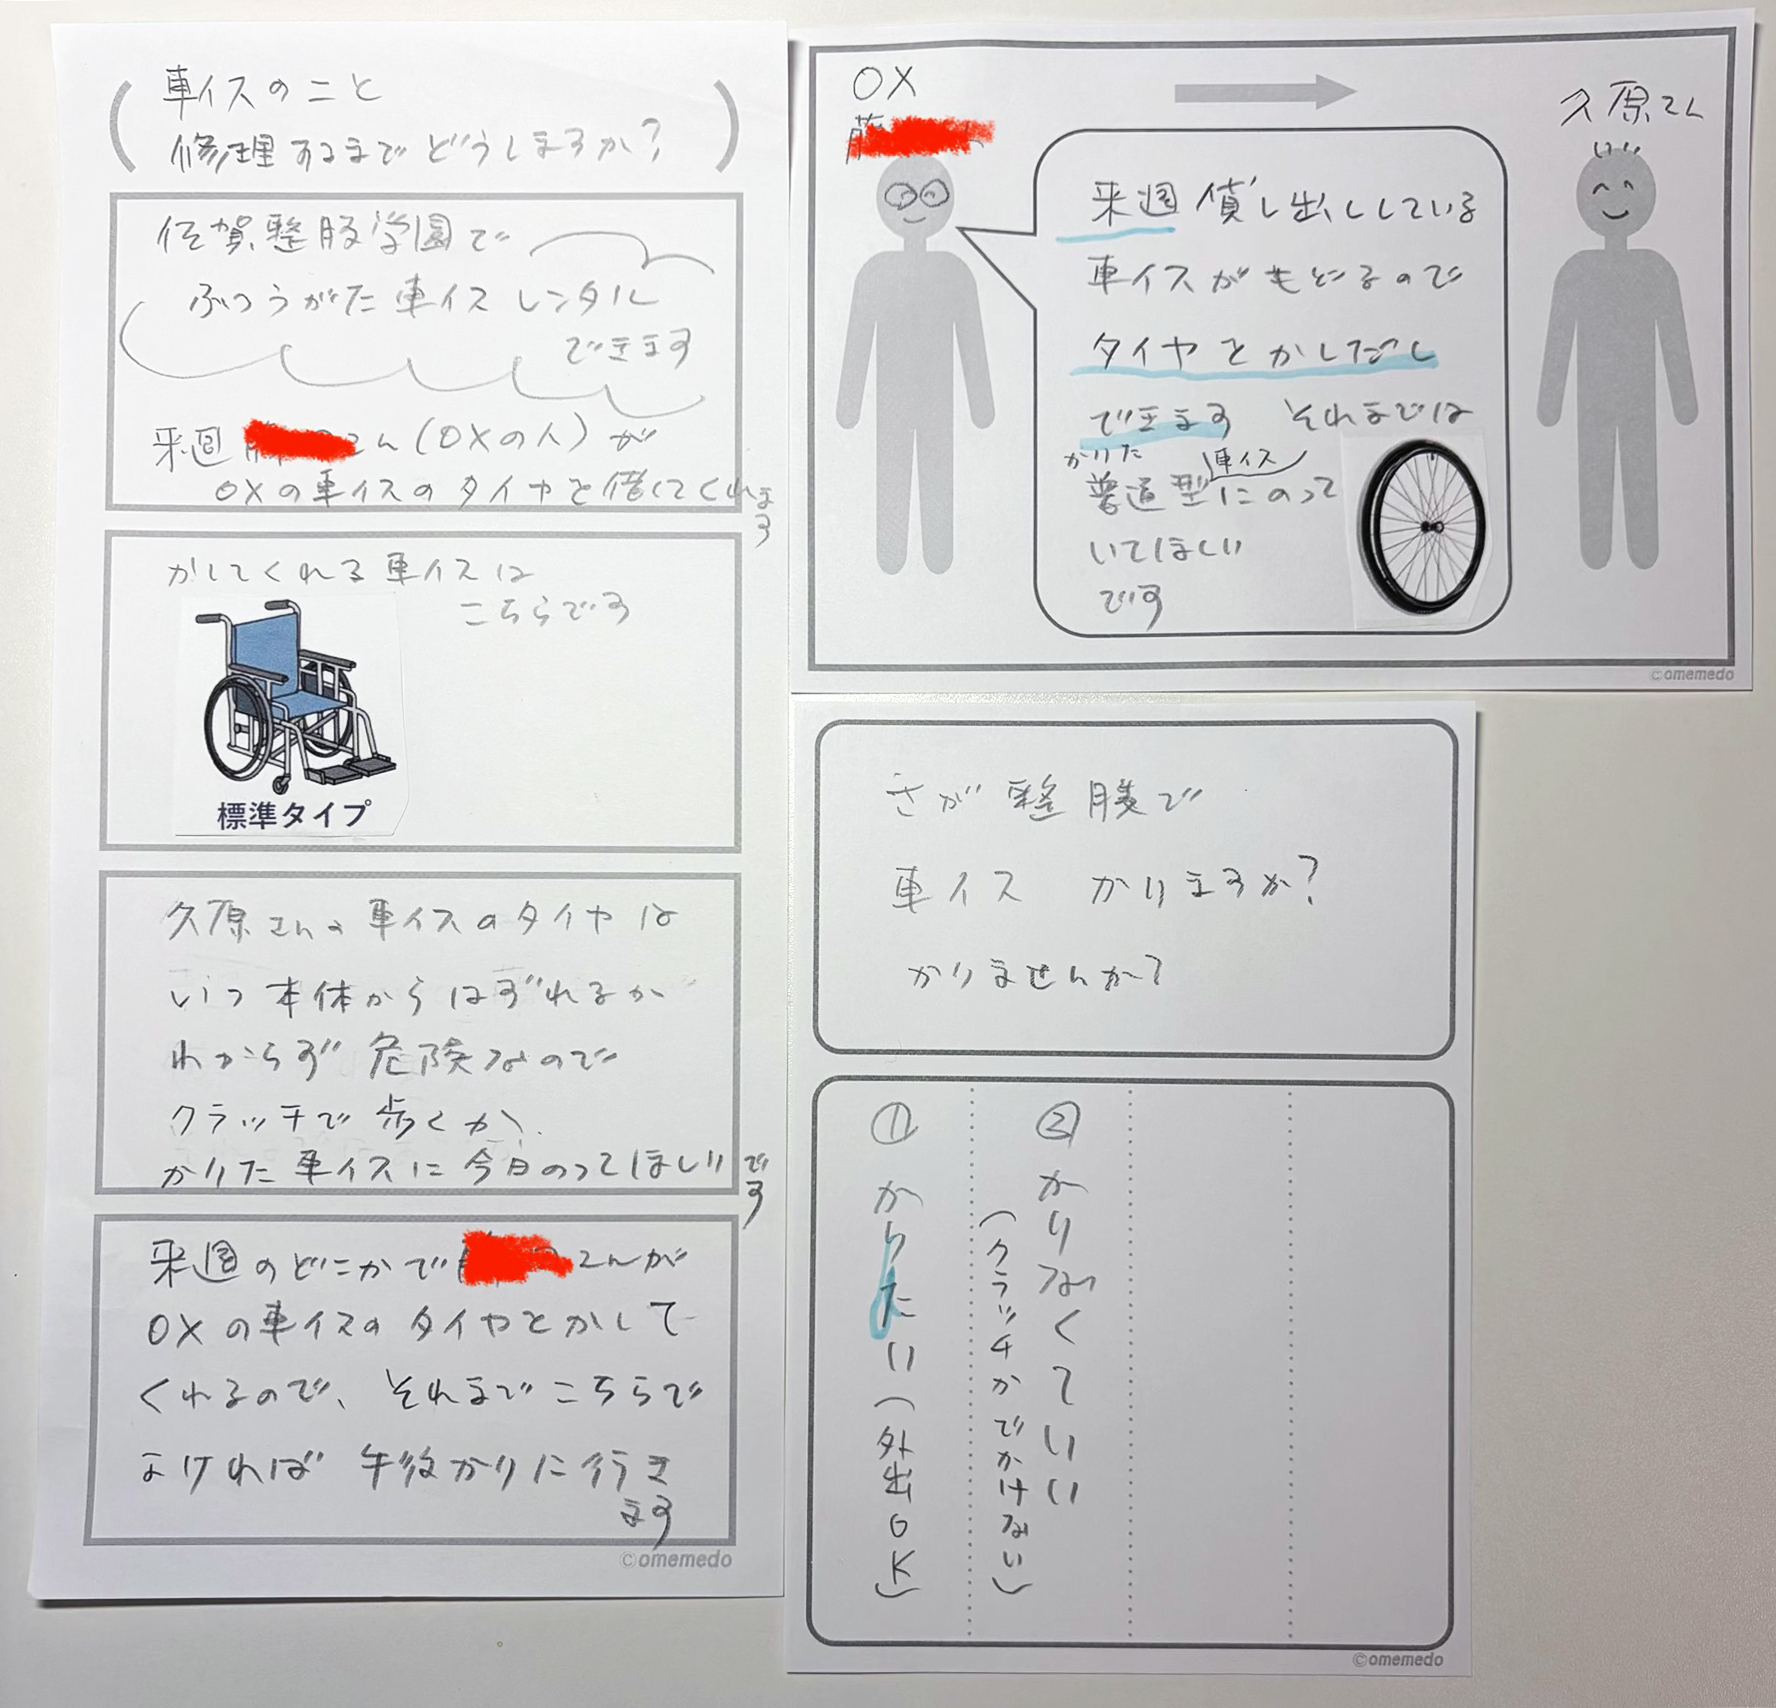 車イスのこと
修理するまでどうしますか?
佐賀整肢学園で
ふつうがた車イスレンタル
できます
来週 さん(OXの人)が
OXの車イスのタイヤを借してくれます
かしてくれる車イスは
こちらです
標準タイプ
久原さんの車イスのタイヤは
いつ本体からはずれるか
わからず危険なので
クラッチで歩くか、
かりた車イスに今日のってほしいです
来週のどこかで さんが
OXの車イスのタイヤをかして
くれるので、それまでこちらで
よければ午後かりに行き
ます
©omemedo
OX
久原さん
来週貸し出ししている
車イスがもどるので
タイヤをかしだし
できます それまでは
かりた
普通型車イスにのって
いてほしい
です
©omemedo
さが整肢で
車イス かりますか?
かりませんか?
①かりたい(外出OK)
②かりなくていい
(クラッチかでかけない)
©omemedo